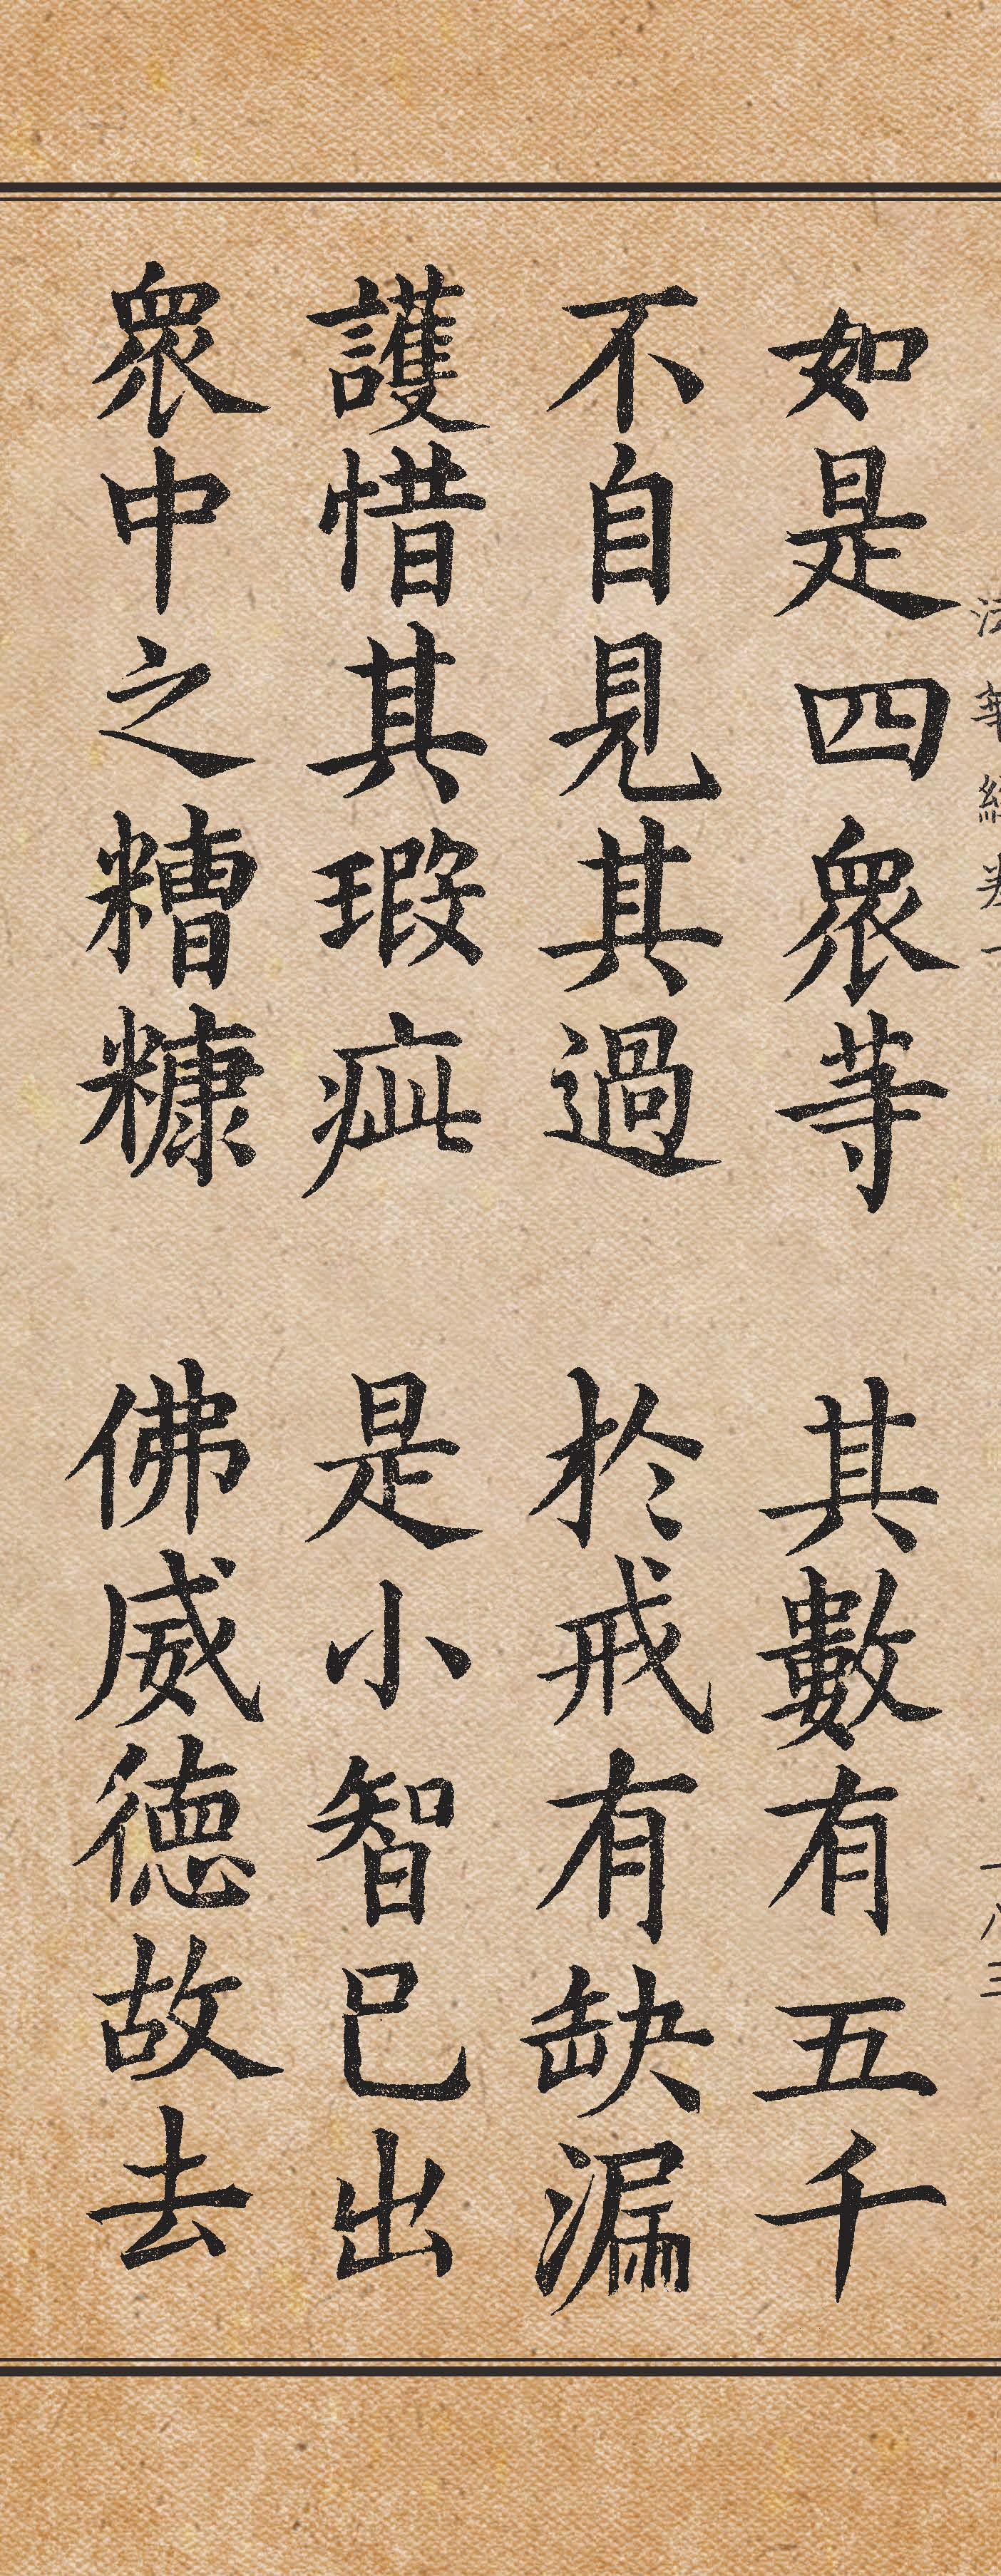 如是四衆等　其數有五千
不自見其過　於戒有缺漏
護惜其瑕疵　是小智已出
衆中之糟糠　佛威德故去